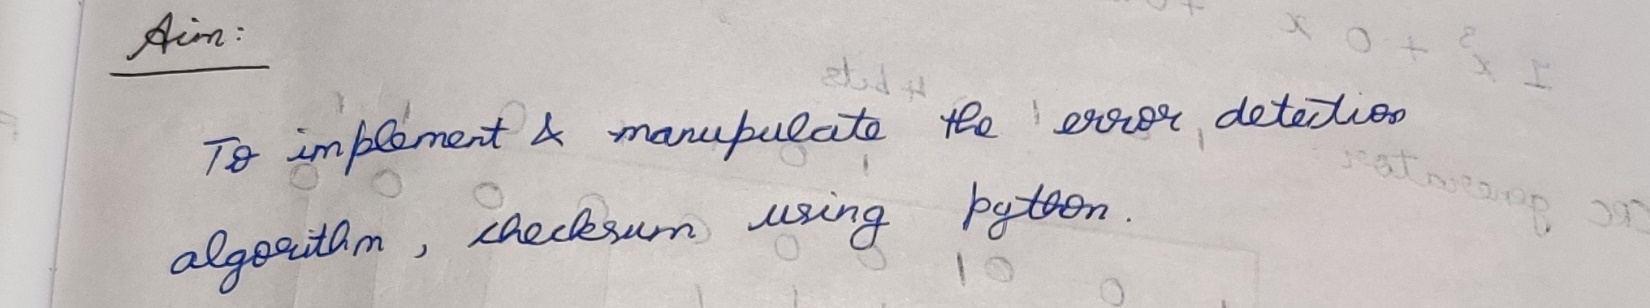 Aim:
To implement & manupulate the error detection
algorithm, checksum using python.